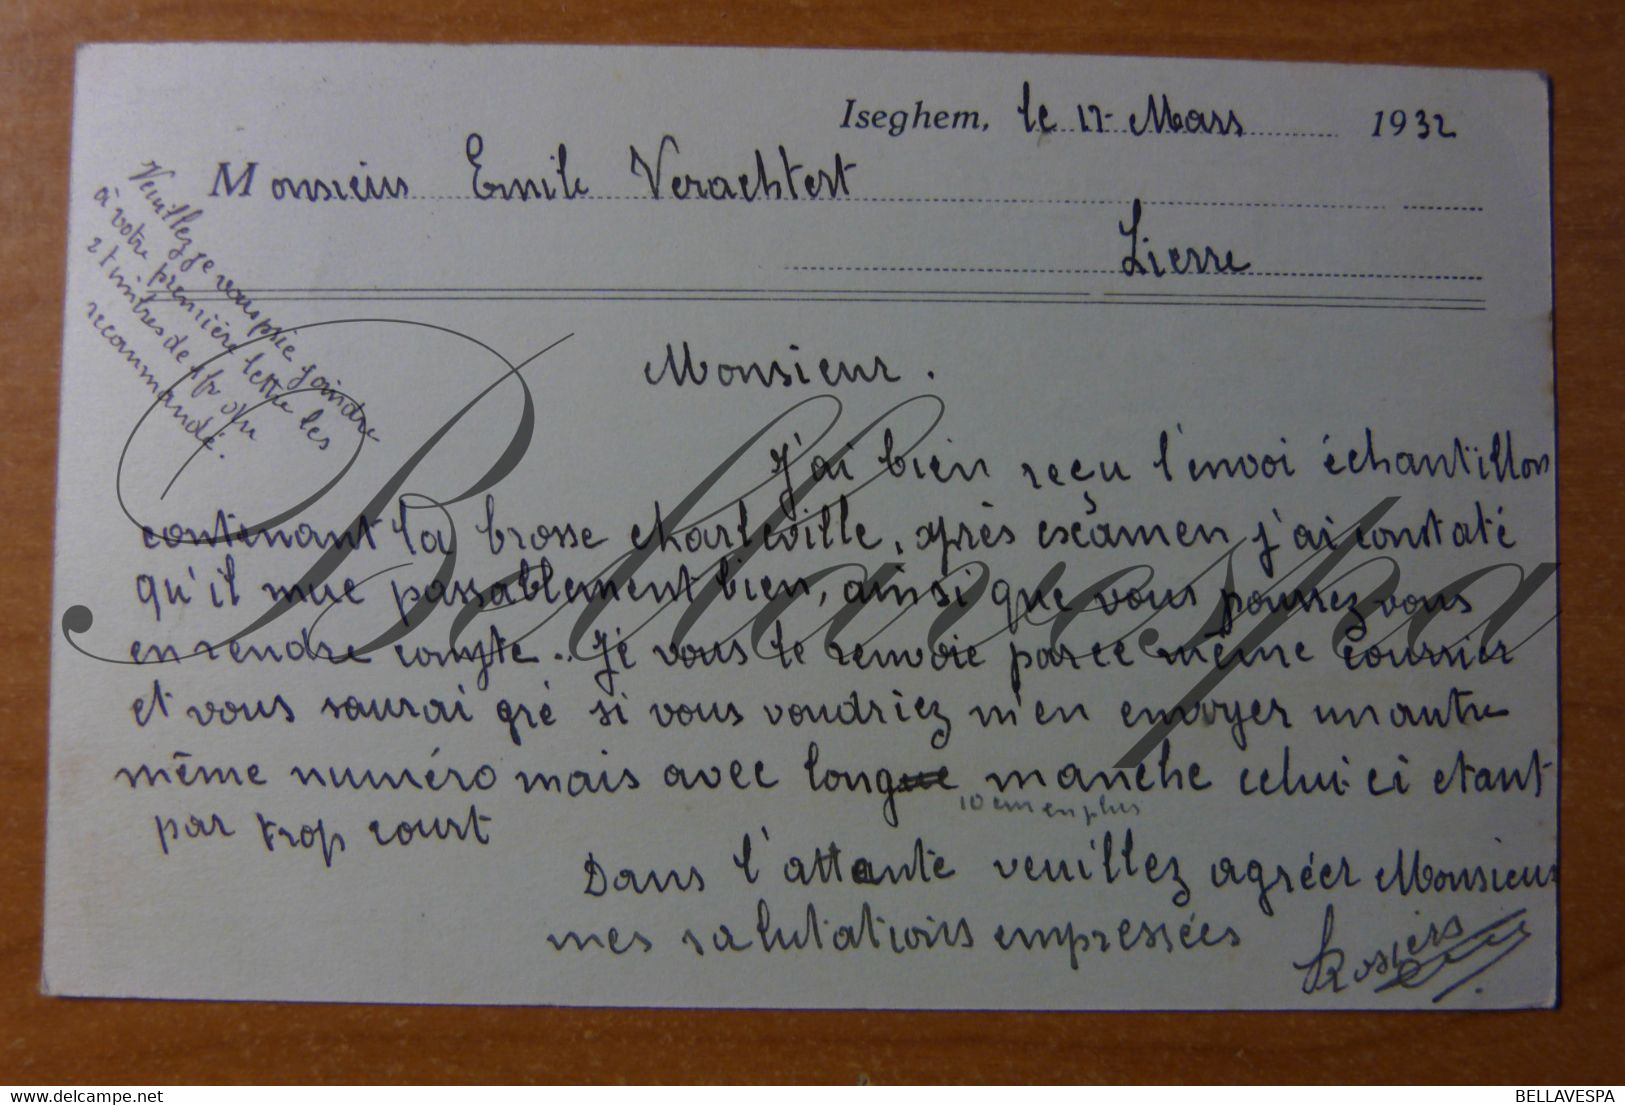 Iseghem, le 17 Mars 1932
Monsieur Emile Verachtert
Lierre
Veuillez je vous prie joindre
à votre première lettre les
2 timbres de 1 fr ou
recommandé.
Monsieur.
J'ai bien reçu l'envoi échantillon
contenant la brosse charleville, après esçamen j'ai constaté
qu'il mue passablement bien, ainsi que vous pourrez vous
en rendre compte.. Je vous le renvoie par ce même courrier
et vous saurai gré si vous voudriez m'en envoyer un autre
même numéro mais avec long manche celui-ci etant
10 cm en plus
par trop court
Dans l'attente veuillez agréer Monsieur
mes salutations empressées
Rosiers
Bellavespa
delcampe.net
BELLAVESPA